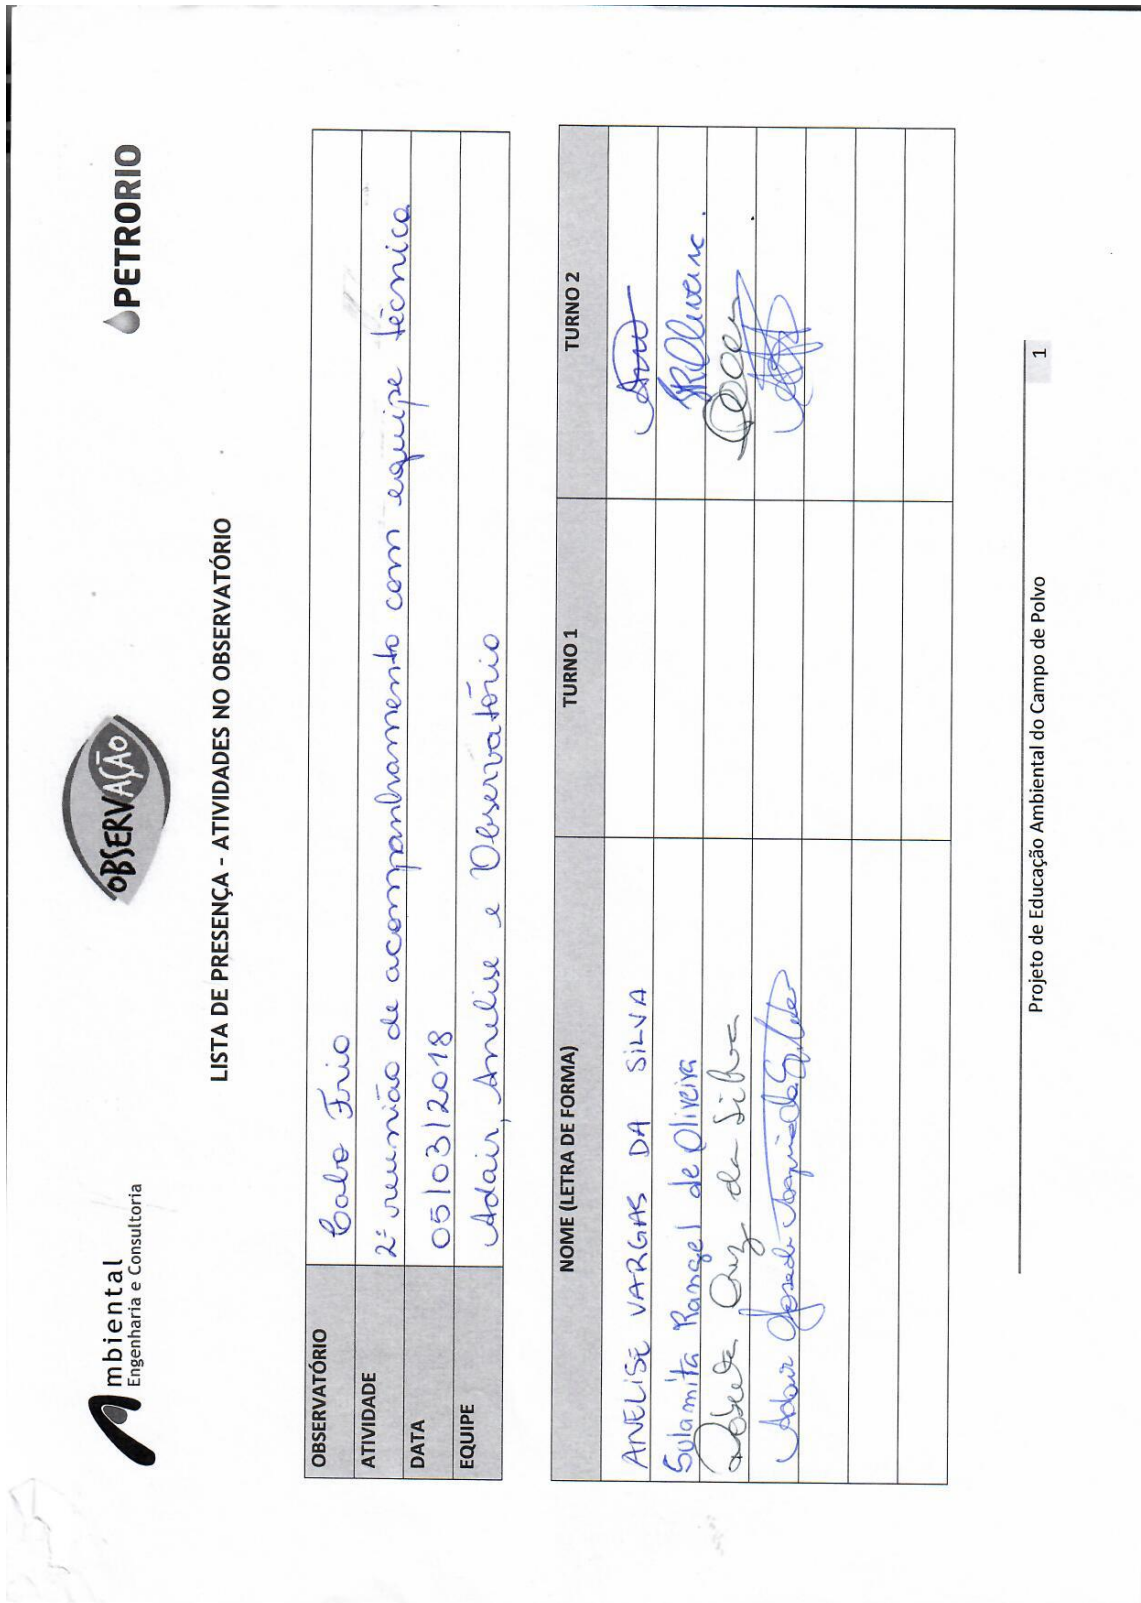 Ambiental
Engenharia e Consultoria
OBSERVAÇÃO
PETRORIO
LISTA DE PRESENÇA - ATIVIDADES NO OBSERVATÓRIO
OBSERVATÓRIO Cabo Frio
ATIVIDADE 2ª reunião de acompanhamento com equipe técnica
DATA 05/03/2018
EQUIPE Adair, Anelise e Observatório
NOME (LETRA DE FORMA) TURNO 1 TURNO 2
ANELISE VARGAS DA SILVA
Sulamita Rangel de Oliveira SROliveira.
Cruz da Silva
Adair
Projeto de Educação Ambiental do Campo de Polvo 1